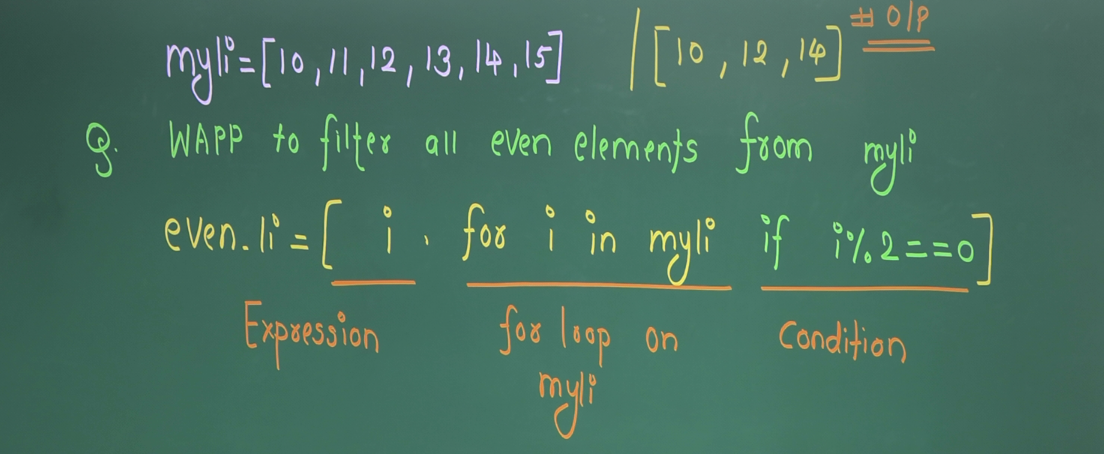 myli=[10,11,12,13,14,15] | [10,12,14] # O/P
Q. WAPP to filter all even elements from myli
even_li=[ i for i in myli if i%2==0]
Expression for loop on myli Condition